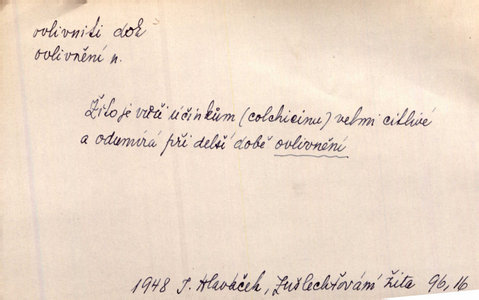 ovlivniti dok
ovlivnění n.
Žito je vůči účinkům (colchicinu) velmi citlivé
a odumírá při delší době ovlivnění
1948 J. Hlaváček, Zušlechťování žita 96,16